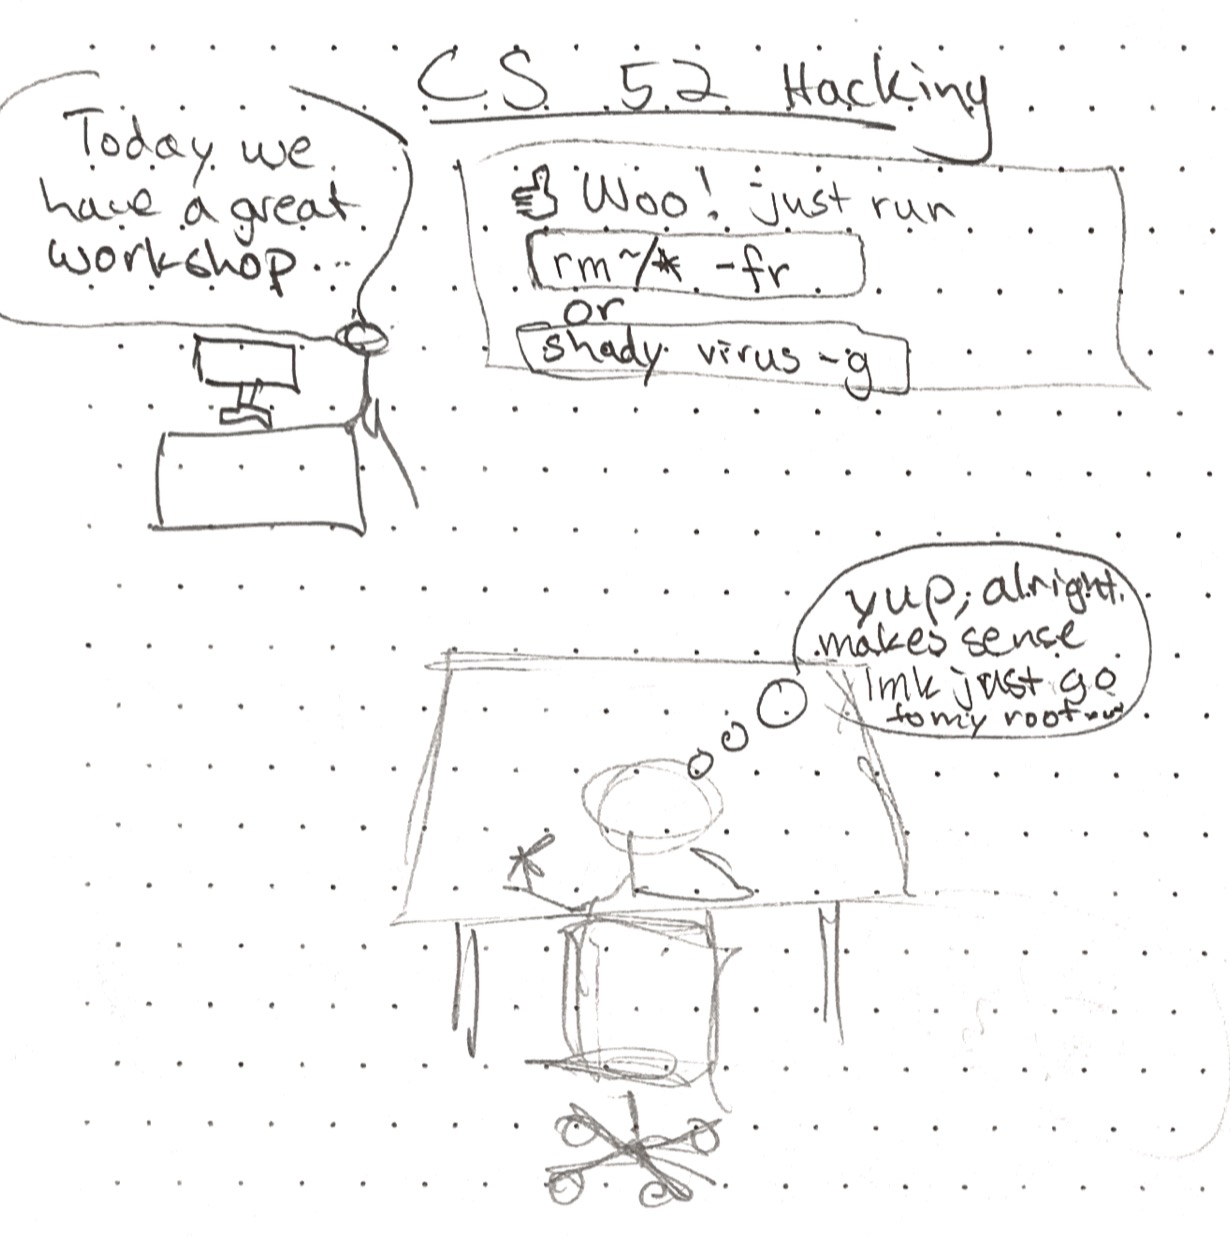 CS 52 Hacking
Today we
have a great
workshop...
Woo! just run
rm ~/* -fr
or
shady virus -g
yup, alright
makes sense
lmk just go
to my root